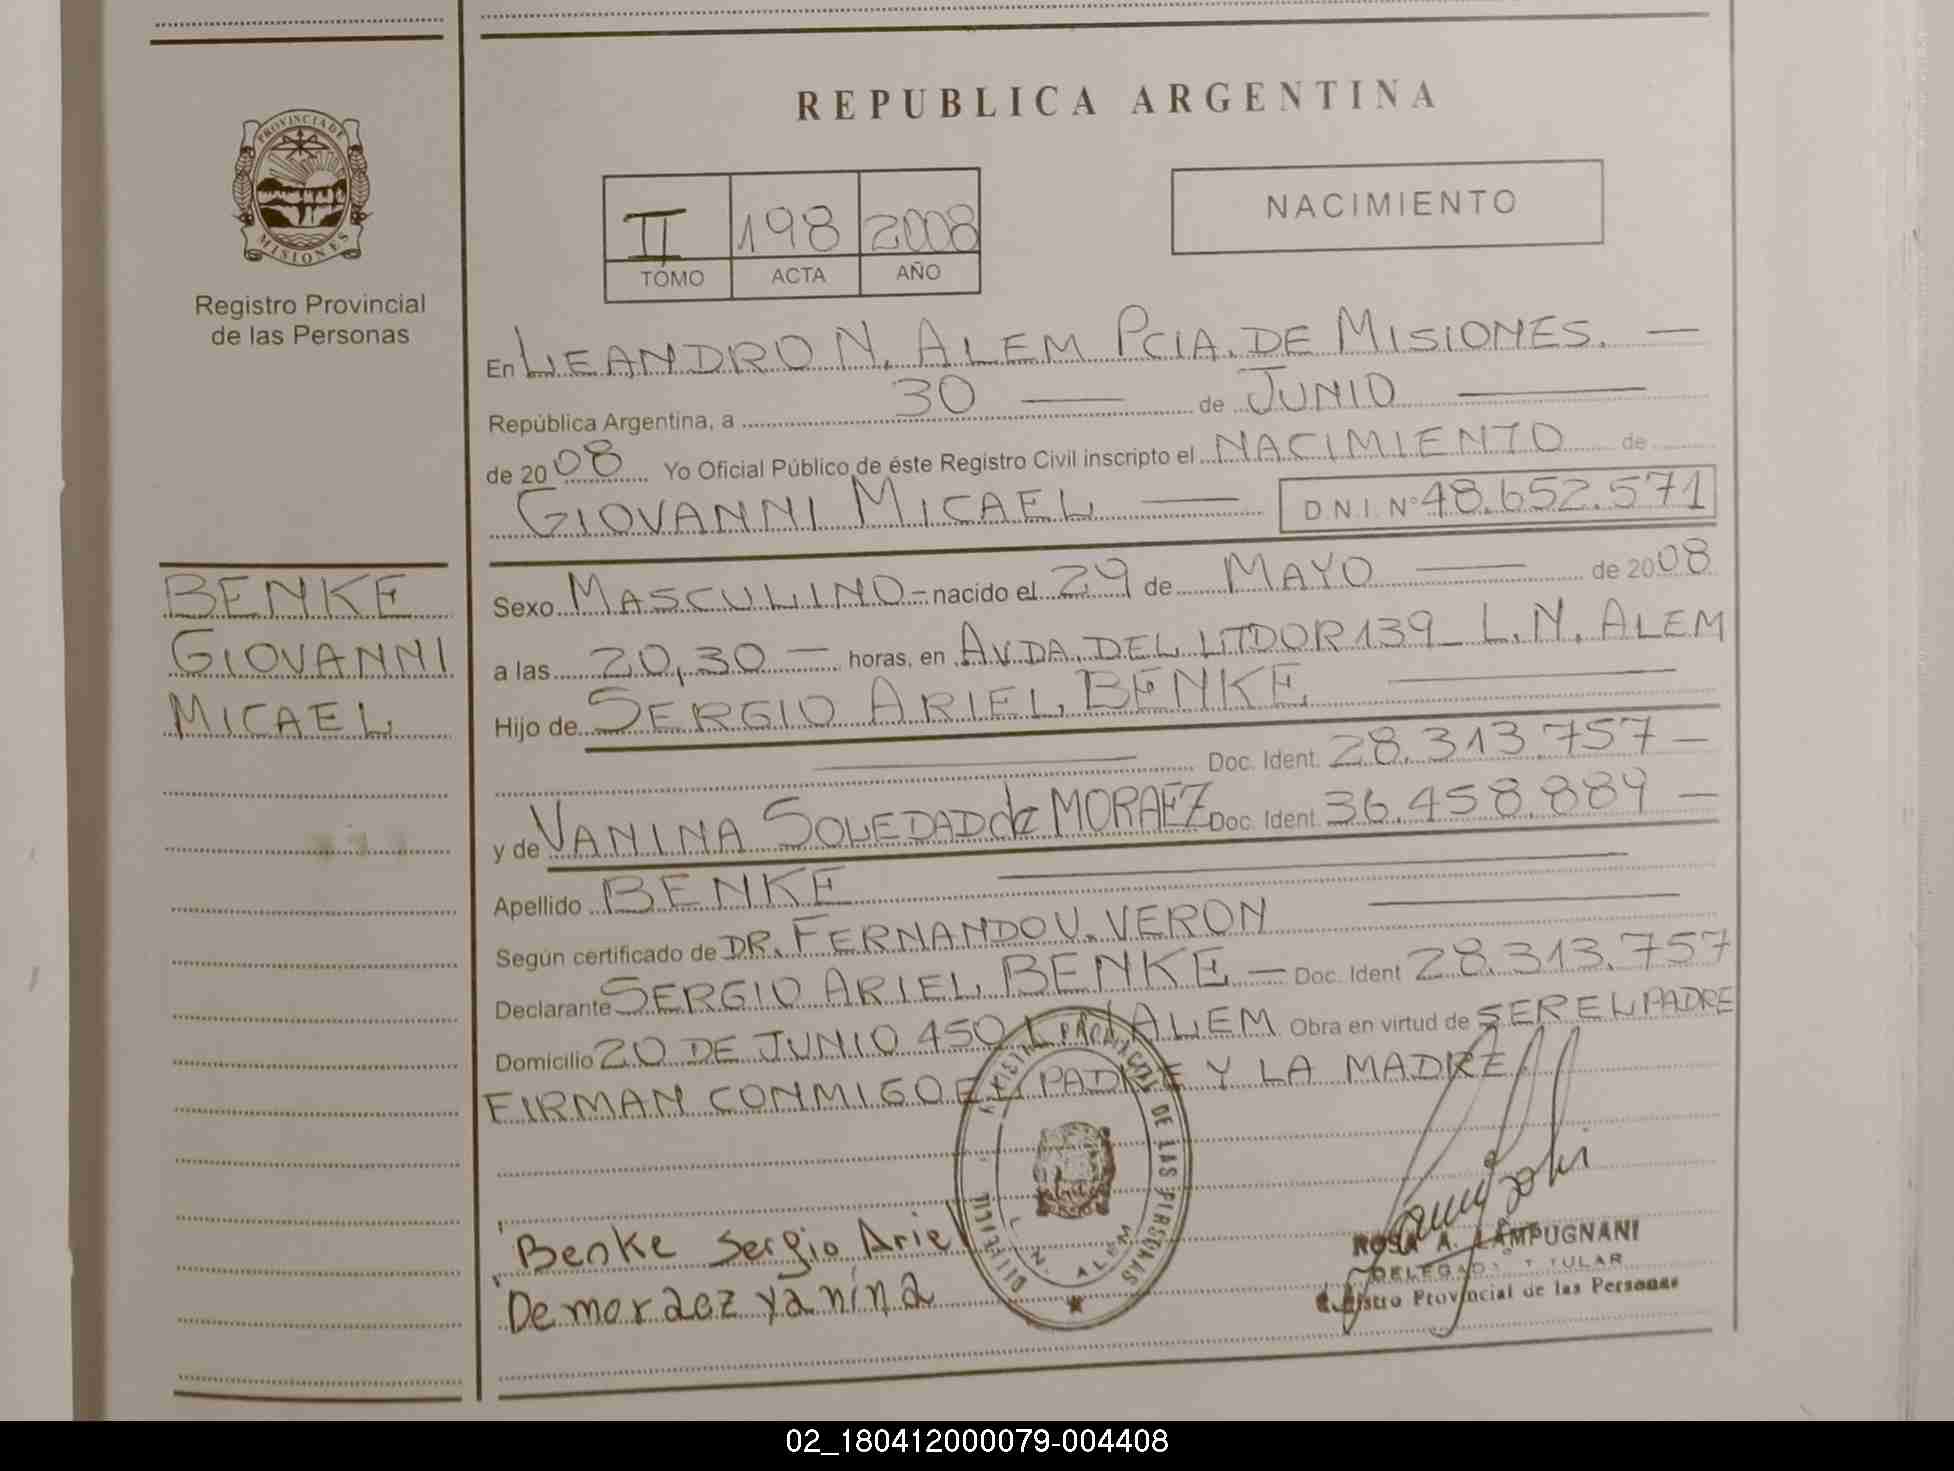 PROVINCIA DE
MISIONES
Registro Provincial
de las Personas
REPUBLICA ARGENTINA
II 198 2008
TOMO ACTA AÑO
NACIMIENTO
En LEANDRO N. ALEM PCIA. DE MISIONES. —
República Argentina, a 30 — de JUNIO —
de 2008 Yo Oficial Público de éste Registro Civil inscripto el NACIMIENTO de
GIOVANNI MICAEL — D.N.I. N° 48.652.571
BENKE
GIOVANNI
MICAEL
Sexo MASCULINO - nacido el 29 de MAYO — de 2008
a las 20,30 — horas, en AVDA. DEL LITDOR 139_ L.N. ALEM
Hijo de SERGIO ARIEL BENKE —
— Doc. Ident. 28.313.757 —
y de VANINA SOLEDAD de MORAEZ Doc. Ident. 36.458.889 —
Apellido BENKE —
Según certificado de DR. FERNANDO V. VERON —
Declarante SERGIO ARIEL BENKE — Doc. Ident 28.313.757
Domicilio 20 DE JUNIO 450 L.N. ALEM Obra en virtud de SER EL PADRE
FIRMAN CONMIGO EL PADRE Y LA MADRE.
DE LAS PERSONAS
L. N. ALEM
Benke Sergio Ariel
De moraez yanina
ROSA A. LAMPUGNANI
DELEGADA TITULAR
Registro Provincial de las Personas
02_180412000079-004408